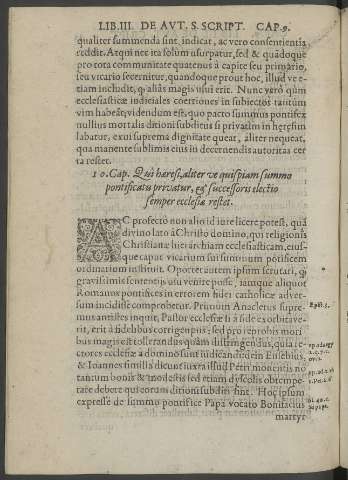 LIB.III. DE AVT. S. SCRIPT. CAP.9.
qualiter summenda sint, indicat, ac vero consentientia
reddit. Atqui nec ita solum usurpatur, sed & quādoque
pro tota communitate quatenus à capite seu primario,
seu vicario secernitur, quandoque prout hoc, illud ve e-
tiam includit, q; aliàs magis usui erit. Nunc
ecclesiasticæ iudiciales coertiones in subiectos tantum
vim habeāt, videndum est, quo pacto summus pontifex
nullius mortalis ditioni subditus si privatim in hęresim
labatur, exui suprema dignitate queat, aliter nequeat,
qua manente sublimis eius in decernendis autoritas cer
ta restet.
10. Cap. Qui hæresi, aliter ve quispiam summo
pontificatu privatur, eq; successoris electio
semper ecclesiæ restet.
AC profecto non alio id iure licere potest, quā
divino lato à Christo domino, qui religionis
Christianæ hierarchiam ecclesiasticam, eius-
que caput vicarium sui summum pontificem
ordinatum instituit. Oportet autem ipsum scrutari, q;
gravissimis sententijs usu venire posse, iamque aliquot
Romanos pontifices in errorem fidei catholicæ adver-
sum incidisse comprobetur. Primum Anacletus supre-
mus antistes inquit, Pastor ecclesiæ si à fide exorbitave-
rit, erit à fidelibus corrigenpus: sed pro reprobis mori
bus magis est tollerandus quàm distringendus, quia re-
ctores ecclesiæ à domino sunt iudicandi. dein Eusebius,
& Ioannes similia dicunt iuxta illud Petri monentis no
tantum bonis & modestis sed etiam dyscolis obtempe-
rare debere qui eorum ditioni subditi sint. Hoc ipsum
expresse de summo pontifice Papa vocato Bonifacius
martyr
Epist. 3.